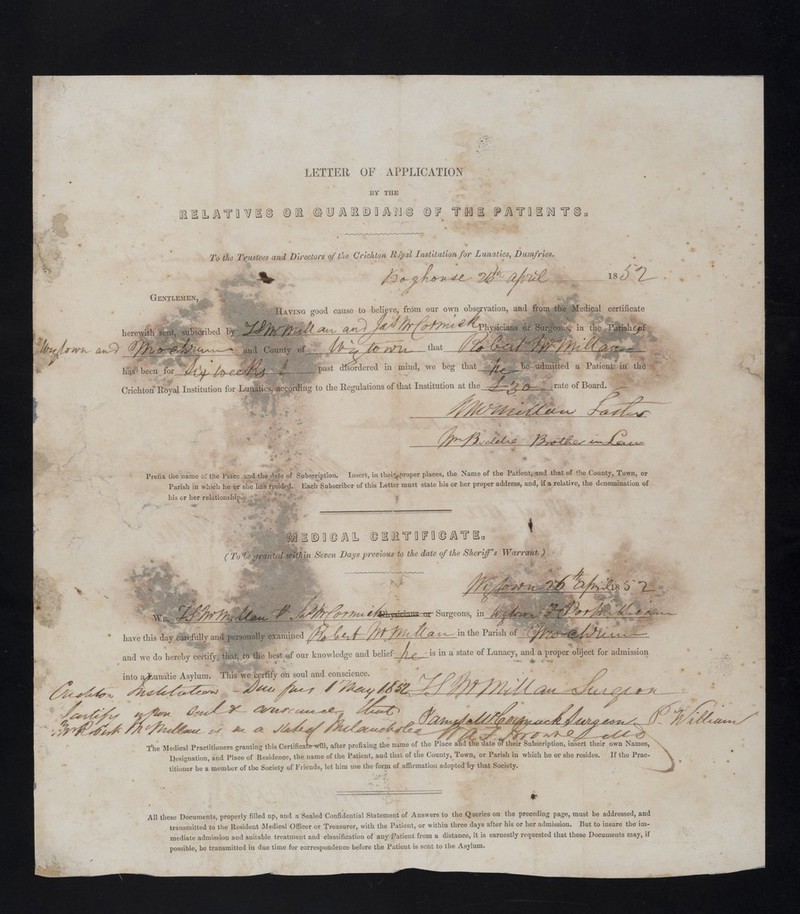 LETTER OF APPLICATION
BY THE
RELATIVES OR GUARDIANS OF THE PATIENTS.
To the Trustees and Directors of the Crichton Royal Institution for Lunatics, Dumfries.
26th April 1852
GENTLEMEN,
HAVING good cause to believe, from our own observation, and from the Medical certificate
herewith sent, subscribed by T S McMillan and Jas McCormick Physicians or Surgeons, in the Parish of
Wigtown and Mochrum and County of Wigtown that Robert McMillan
has been for six weeks past disordered in mind, we beg that he be admitted a Patient in the
Crichton Royal Institution for Lunatics, according to the Regulations of that Institution at the £30 rate of Board.
McMillan
Wm Brother in Law
Prefix the name of the Place and the date of Subscription. Insert, in their proper places, the Name of the Patient, and that of the County, Town, or
Parish in which he or she has resided. Each Subscriber of this Letter must state his or her proper address, and, if a relative, the denomination of
his or her relationship.
MEDICAL CERTIFICATE.
(To be granted within Seven Days previous to the date of the Sheriff's Warrant.)
Wigtown 26th April 1852
We, T S McMillan & Jas McCormick Physicians or Surgeons, in Wigtown & Port William
have this day carefully and personally examined Robert McMillan in the Parish of Mochrum
and we do hereby certify, that, to the best of our knowledge and belief he is in a state of Lunacy, and a proper object for admission
into a Lunatic Asylum. This we certify on soul and conscience.
Crichton Institution 1 May 1852 T S McMillan Surgeon
certify upon soul & conscience that James McCormack Surgeon P. William
McMillan is in a state of Melancholia W A F Browne
The Medical Practitioners granting this Certificate will, after prefixing the name of the Place and the date of their Subscription, insert their own Names,
Designation, and Place of Residence, the name of the Patient, and that of the County, Town, or Parish in which he or she resides. If the Prac-
titioner be a member of the Society of Friends, let him use the form of affirmation adopted by that Society.
All these Documents, properly filled up, and a Sealed Confidential Statement of Answers to the Queries on the preceding page, must be addressed, and
transmitted to the Resident Medical Officer or Treasurer, with the Patient, or within three days after his or her admission. But to insure the im-
mediate admission and suitable treatment and classification of any Patient from a distance, it is earnestly requested that these Documents may, if
possible, be transmitted in due time for correspondence before the Patient is sent to the Asylum.